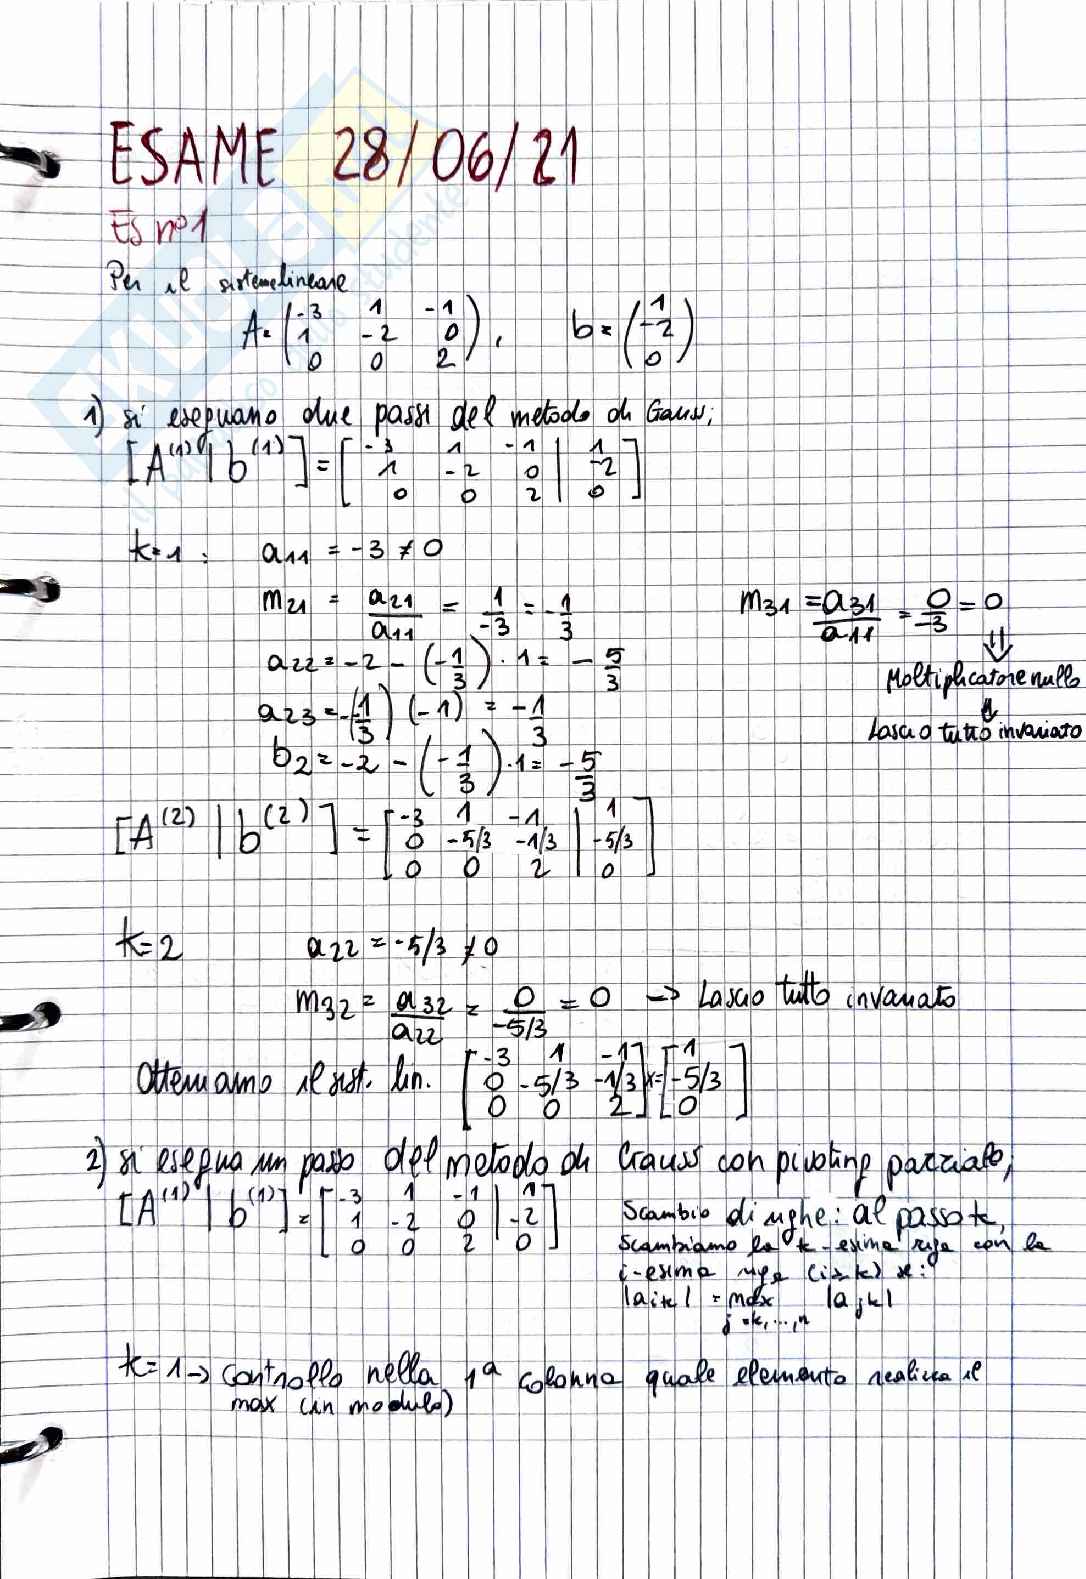 ESAME 28/06/21
ES n°1
Per il sistema lineare
A = (-3 1 -1), b = (1)
(1 -2 0) (-2)
(0 0 2) (0)
1) si eseguano due passi del metodo di Gauss;
[A^(1) | b^(1)] = [-3 1 -1 | 1]
[1 -2 0 | -2]
[0 0 2 | 0]
k=1: a11 = -3 ≠ 0
m21 = a21/a11 = 1/-3 = -1/3 m31 = a31/a11 = 0/-3 = 0
⇓
a22 = -2 - (-1/3) · 1 = -5/3 Moltiplicatore nullo
↓
a23 = -(-1/3) (-1) = -1/3 Lascio tutto invariato
b2 = -2 - (-1/3) · 1 = -5/3
[A^(2) | b^(2)] = [-3 1 -1 | 1]
[0 -5/3 -1/3 | -5/3]
[0 0 2 | 0]
k=2 a22 = -5/3 ≠ 0
m32 = a32/a22 = 0/-5/3 = 0 → Lascio tutto invariato
Otteniamo il sist. lin. [-3 1 -1] x = [1]
[0 -5/3 -1/3] [-5/3]
[0 0 2] [0]
2) si esegua un passo del metodo di Gauss con pivoting parziale;
[A^(1) | b^(1)] = [-3 1 -1 | 1]
[1 -2 0 | -2]
[0 0 2 | 0]
Scambio di righe: al passo k,
scambiamo la k-esima riga con la
i-esima riga (i≥k) se:
|aik| = max |ajk|
j=k,...,n
k=1 → Controllo nella 1ª colonna quale elemento realizza il
max (in modulo)